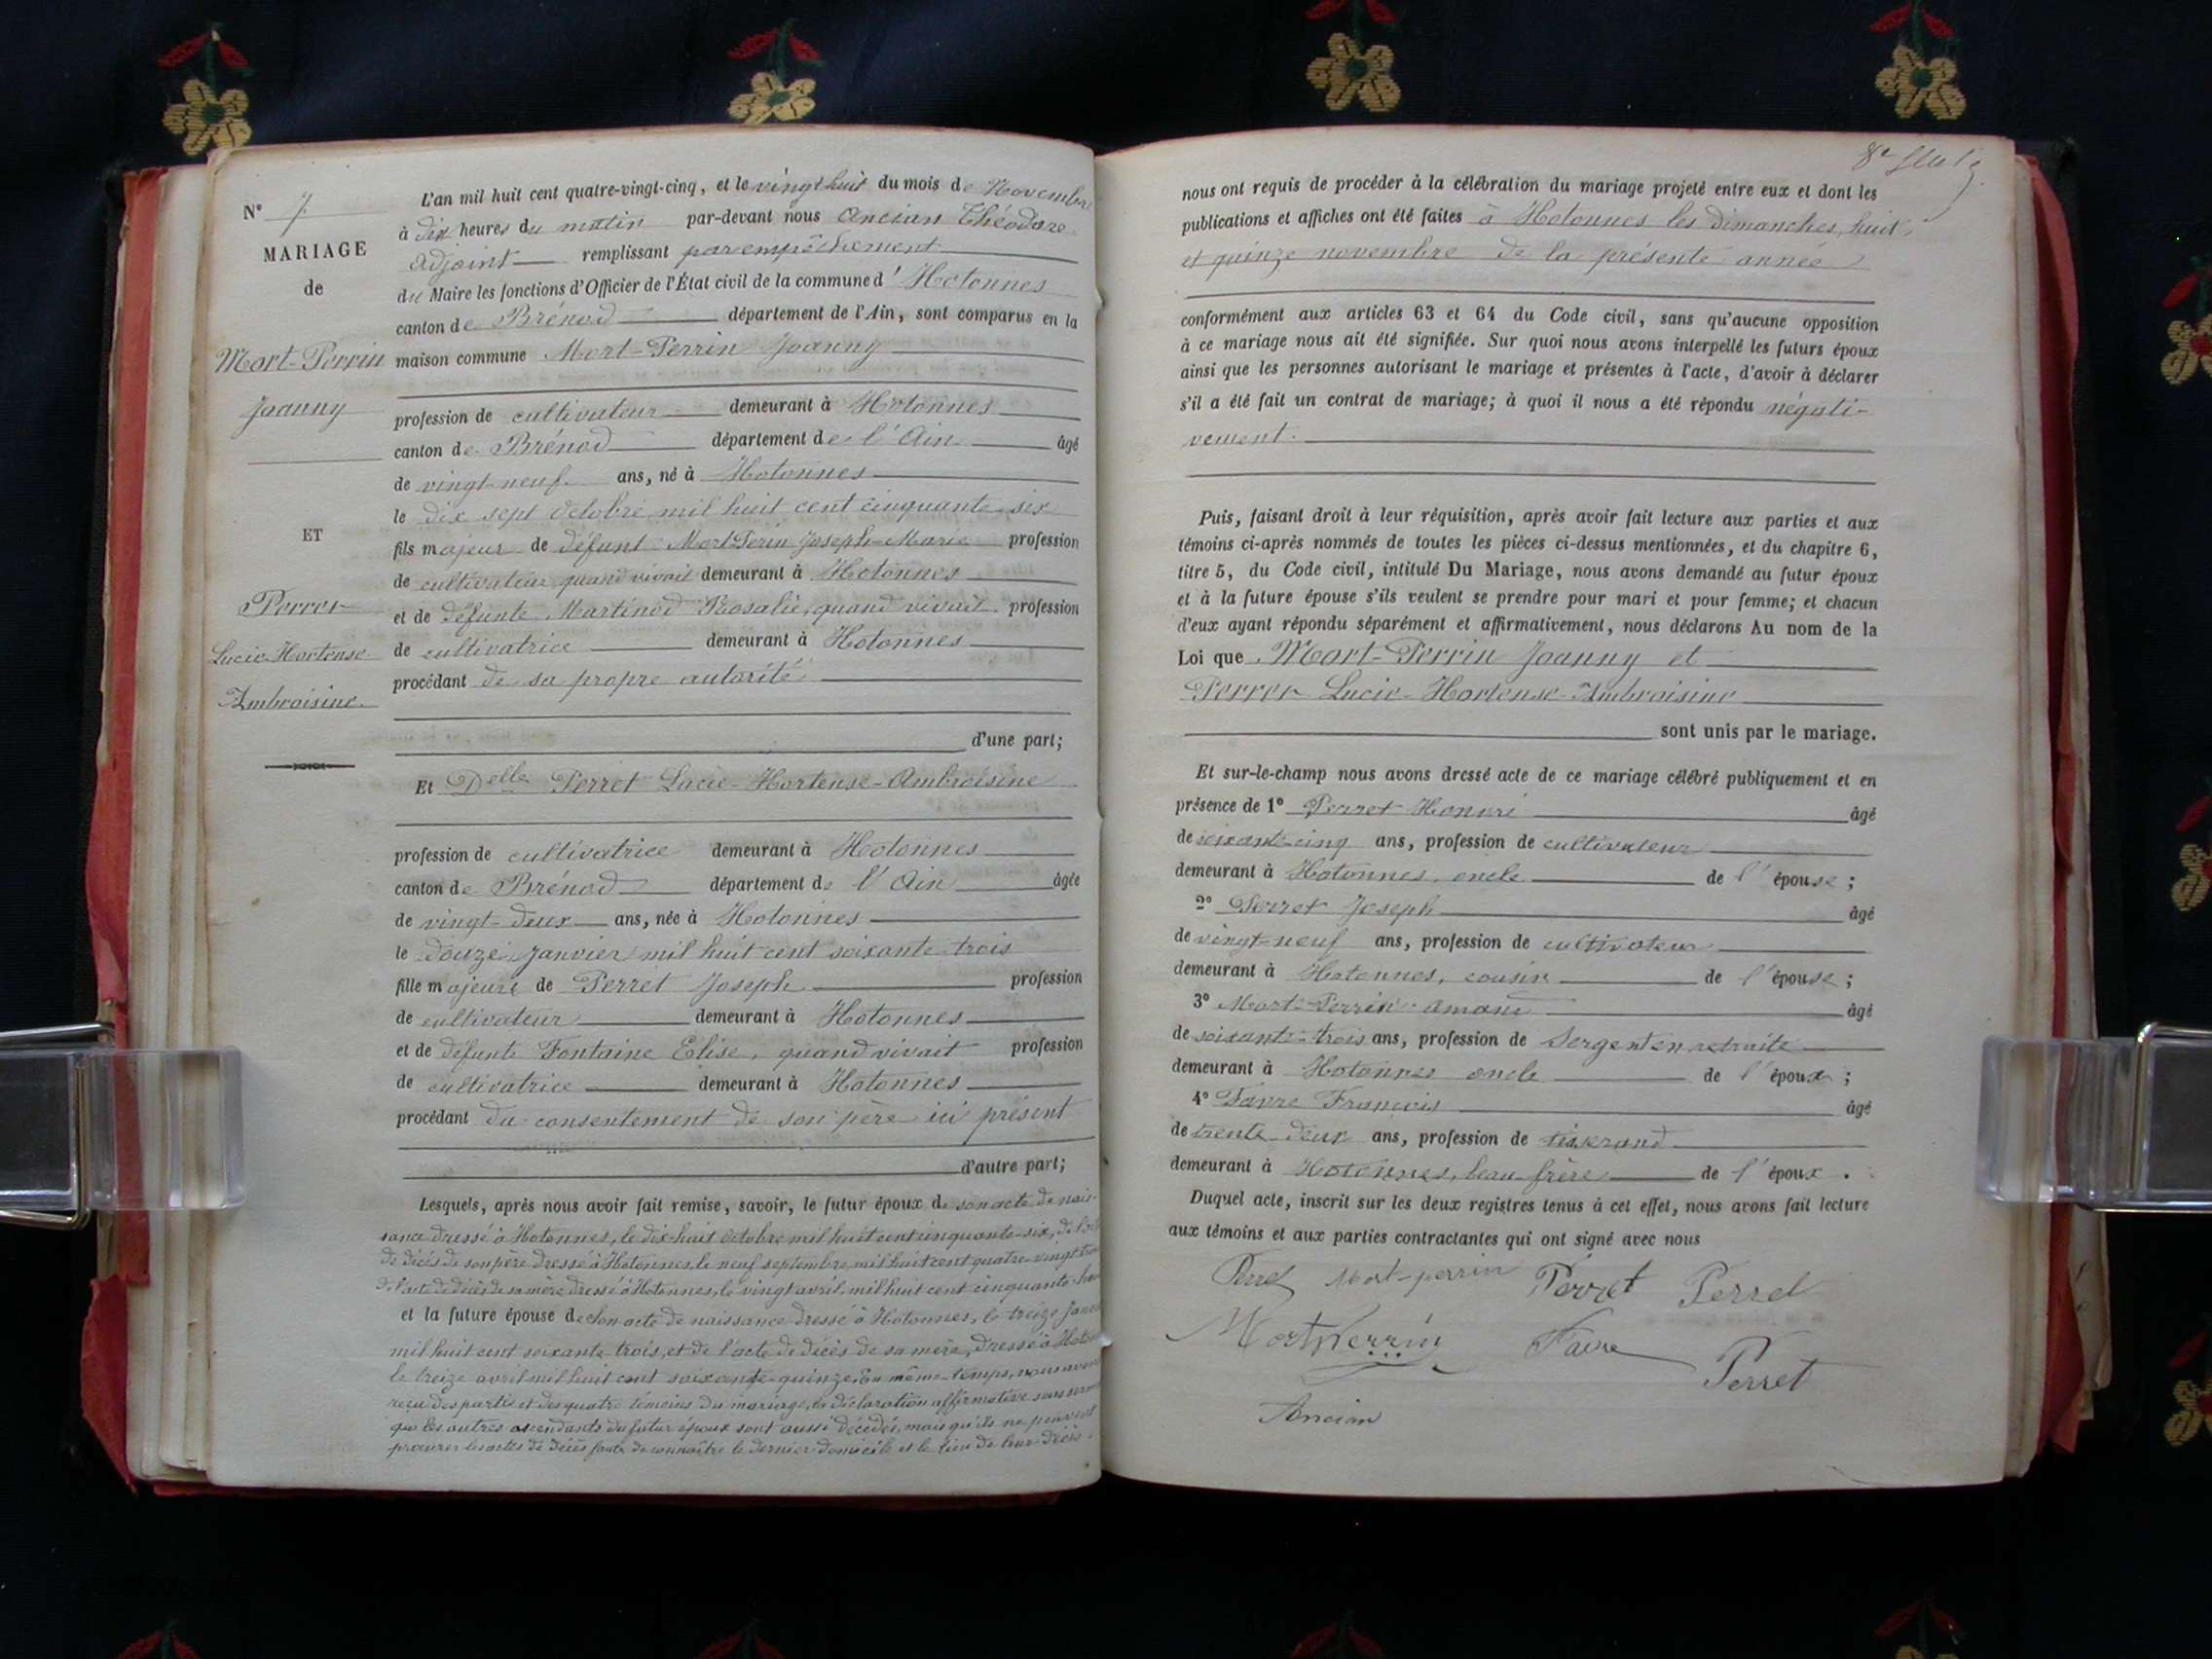 N° 7
MARIAGE
de
Mort-Perrin
Joanny
ET
Perret
Lucie-Hortense
Ambroisine.
L'an mil huit cent quatre-vingt-cinq, et le vingt huit du mois de Novembre
à dix heures du matin par-devant nous Ancian Théodore
adjoint remplissant par empêchement
du Maire les fonctions d'Officier de l'État civil de la commune d'Hotonnes
canton de Brénod département de l'Ain, sont comparus en la
maison commune Mort-Perrin Joanny
profession de cultivateur demeurant à Hotonnes
canton de Brénod département de l'Ain âgé
de vingt-neuf ans, né à Hotonnes
le dix sept Octobre mil huit cent cinquante-six
fils majeur de défunt Mort-Perrin Joseph-Marie profession
de cultivateur quand vivait demeurant à Hotonnes
et de défunte Martinod Rosalie, quand vivait profession
de cultivatrice demeurant à Hotonnes
procédant de sa propre autorité
d'une part;
Et Delle Perret Lucie-Hortense-Ambroisine
profession de cultivatrice demeurant à Hotonnes
canton de Brénod département de l'Ain âgée
de vingt-deux ans, née à Hotonnes
le douze Janvier mil huit cent soixante-trois
fille majeure de Perret Joseph profession
de cultivateur demeurant à Hotonnes
et de défunte Fontaine Elise, quand vivait profession
de cultivatrice demeurant à Hotonnes
procédant du consentement de son père ici présent
d'autre part;
Lesquels, après nous avoir fait remise, savoir, le futur époux de son acte de nais-
sance dressé à Hotonnes, le dix-huit Octobre mil huit cent cinquante-six, de l'acte
de décès de son père dressé à Hotonnes, le neuf septembre, mil huit cent quatre-vingt
de l'acte de décès de sa mère dressé à Hotonnes, le vingt avril, mil huit cent cinquante-
et la future épouse de son acte de naissance dressé à Hotonnes, le treize Janvier
mil huit cent soixante-trois, et de l'acte de décès de sa mère, dressé à Hotonnes
le treize avril mil huit cent soixante-quinze. En même-temps, nous avons
reçu des parties et des quatre témoins du mariage, la déclaration affirmative sous serment
que les autres ascendants du futur époux sont aussi décédés, mais qu'ils ne peuvent
procurer les actes de décès faute de connaître le dernier domicile et le lieu de leur décès.
nous ont requis de procéder à la célébration du mariage projeté entre eux et dont les
publications et affiches ont été faites à Hotonnes les dimanches, huit,
et quinze novembre de la présente année
conformément aux articles 63 et 64 du Code civil, sans qu'aucune opposition
à ce mariage nous ait été signifiée. Sur quoi nous avons interpellé les futurs époux
ainsi que les personnes autorisant le mariage et présentes à l'acte, d'avoir à déclarer
s'il a été fait un contrat de mariage; à quoi il nous a été répondu négati-
vement.
Puis, faisant droit à leur réquisition, après avoir fait lecture aux parties et aux
témoins ci-après nommés de toutes les pièces ci-dessus mentionnées, et du chapitre 6,
titre 5, du Code civil, intitulé Du Mariage, nous avons demandé au futur époux
et à la future épouse s'ils veulent se prendre pour mari et pour femme; et chacun
d'eux ayant répondu séparément et affirmativement, nous déclarons Au nom de la
Loi que Mort-Perrin Joanny et
Perret Lucie-Hortense-Ambroisine
sont unis par le mariage.
Et sur-le-champ nous avons dressé acte de ce mariage célébré publiquement et en
présence de 1° Perret Honoré âgé
de soixante-cinq ans, profession de cultivateur
demeurant à Hotonnes, oncle de l'épouse;
2° Perret Joseph âgé
de vingt-neuf ans, profession de cultivateur
demeurant à Hotonnes, cousin de l'épouse;
3° Mort-Perrin Amand âgé
de soixante-trois ans, profession de Sergent en retraite
demeurant à Hotonnes oncle de l'époux;
4° Favre François âgé
de trente-deux ans, profession de tisserand
demeurant à Hotonnes, beau-frère de l'époux.
Duquel acte, inscrit sur les deux registres tenus à cet effet, nous avons fait lecture
aux témoins et aux parties contractantes qui ont signé avec nous
Perret Mort-perrin Perret Perret
Mort Perrin Favre Perret
Ancian